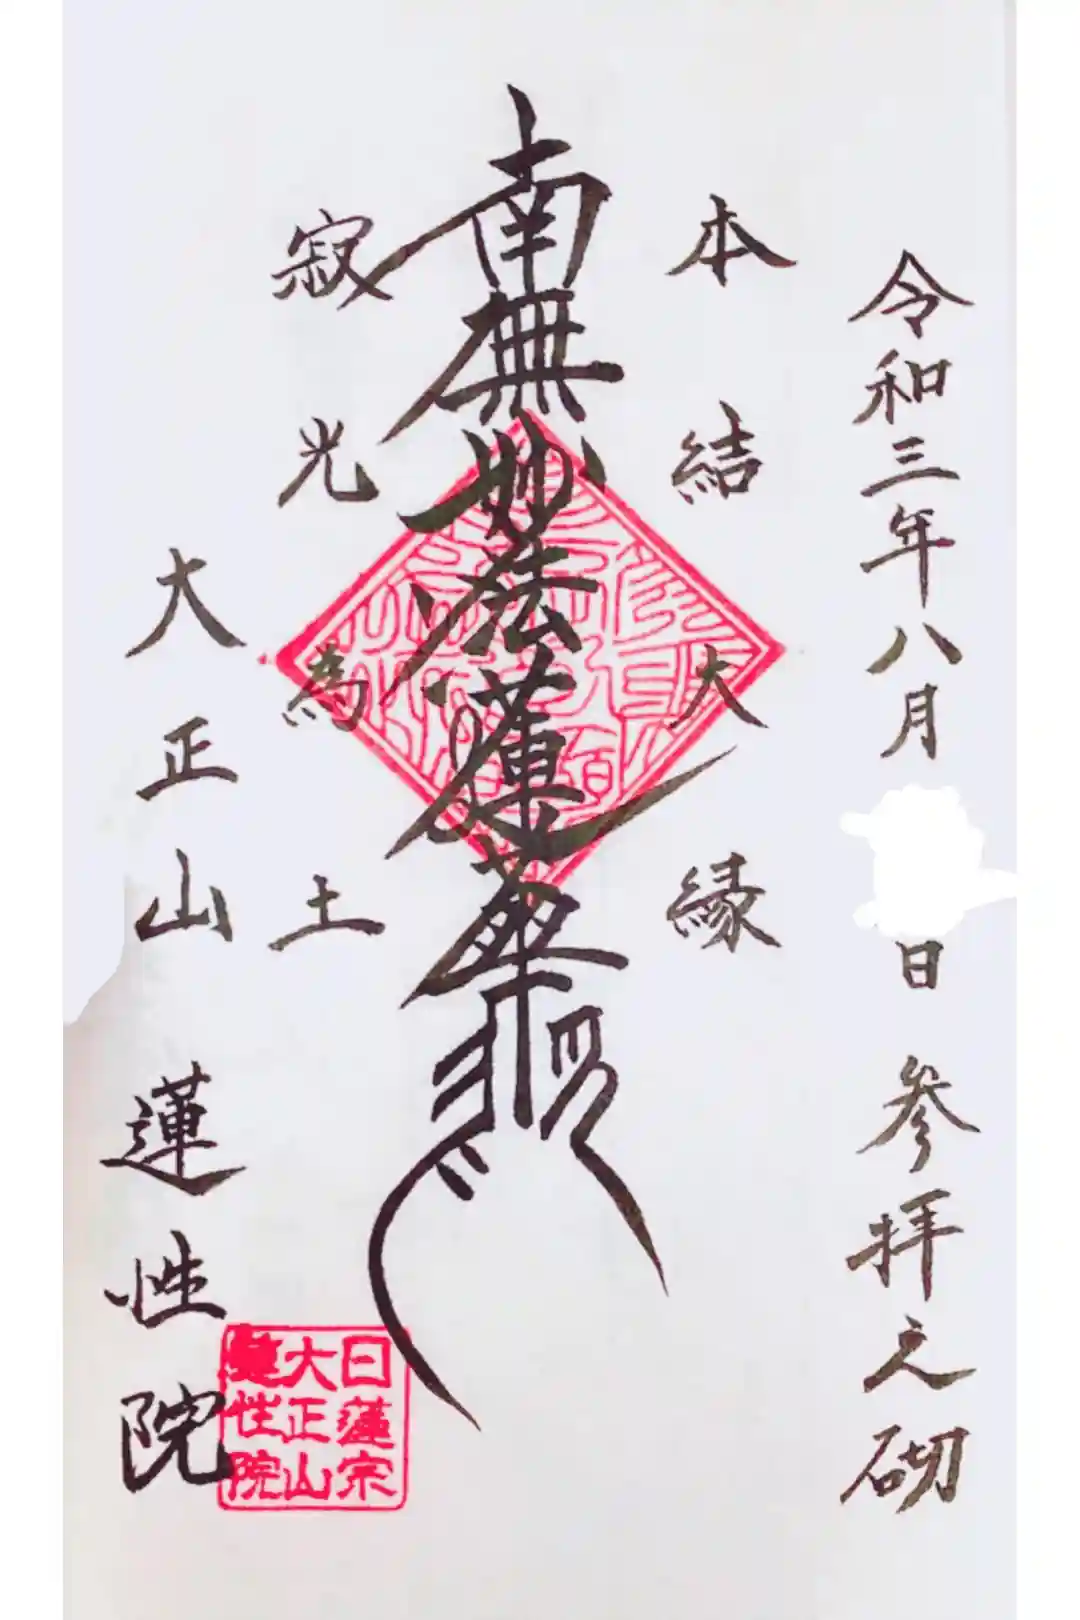 令和三年八月 日 参拝之砌
本結大縁
南無妙法蓮華経
寂光為土
大正山 蓮性院
日蓮宗
大正山
蓮性院